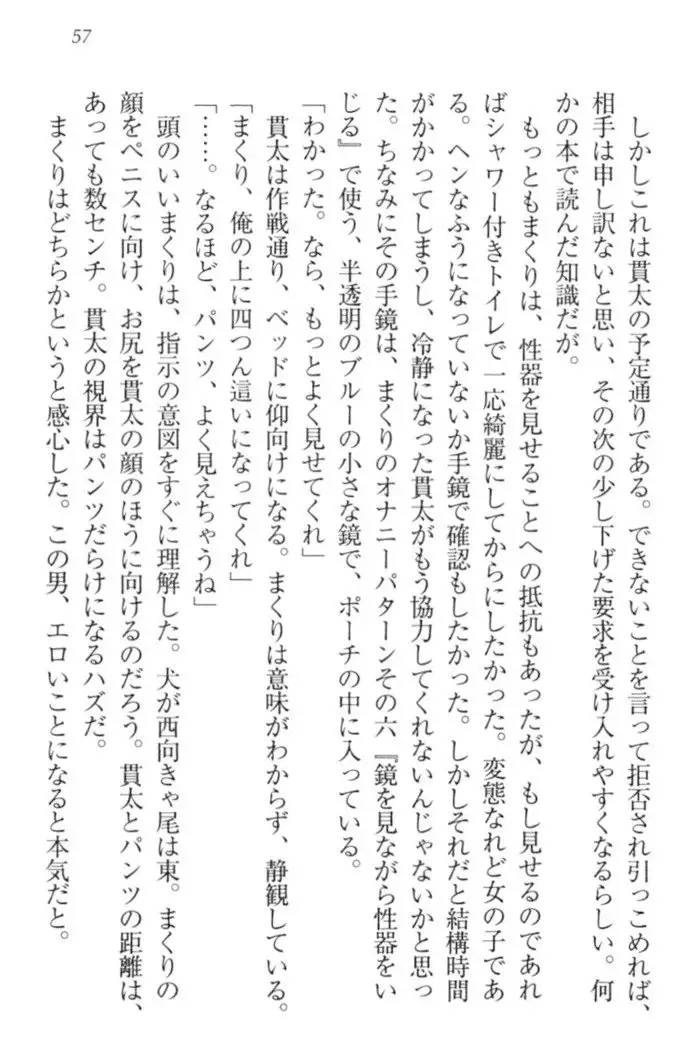 57
しかしこれは貫太の予定通りである。できないことを言って拒否され引っこめれば、
相手は申し訳ないと思い、その次の少し下げた要求を受け入れやすくなるらしい。何
かの本で読んだ知識だが。
もっともまくりは、性器を見せることへの抵抗もあったが、もし見せるのであれ
ばシャワー付きトイレで一応綺麗にしてからにしたかった。変態なれど女の子であ
る。ヘンなふうになっていないか手鏡で確認もしたかった。しかしそれだと結構時間
がかかってしまうし、冷静になった貫太がもう協力してくれないんじゃないかと思っ
た。ちなみにその手鏡は、まくりのオナニーパターンその六『鏡を見ながら性器をい
じる』で使う、半透明のブルーの小さな鏡で、ポーチの中に入っている。
「わかった。なら、もっとよく見せてくれ」
貫太は作戦通り、ベッドに仰向けになる。まくりは意味がわからず、静観している。
「まくり、俺の上に四つん這いになってくれ」
「……。なるほど、パンツ、よく見えちゃうね」
頭のいいまくりは、指示の意図をすぐに理解した。犬が西向きゃ尾は東。まくりの
顔をペニスに向け、お尻を貫太の顔のほうに向けるのだろう。貫太とパンツの距離は、
あっても数センチ。貫太の視界はパンツだらけになるハズだ。
まくりはどちらかというと感心した。この男、エロいことになると本気だと。